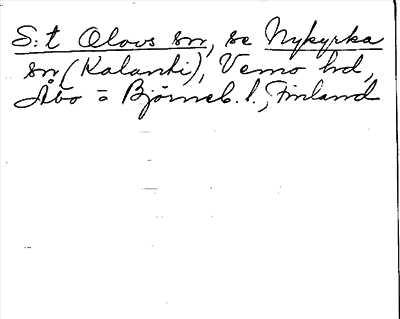 S:t Olovs sn, se Nykyrka
sn (Kalanti), Vemo hd,
Åbo = Björneb. l., Finland